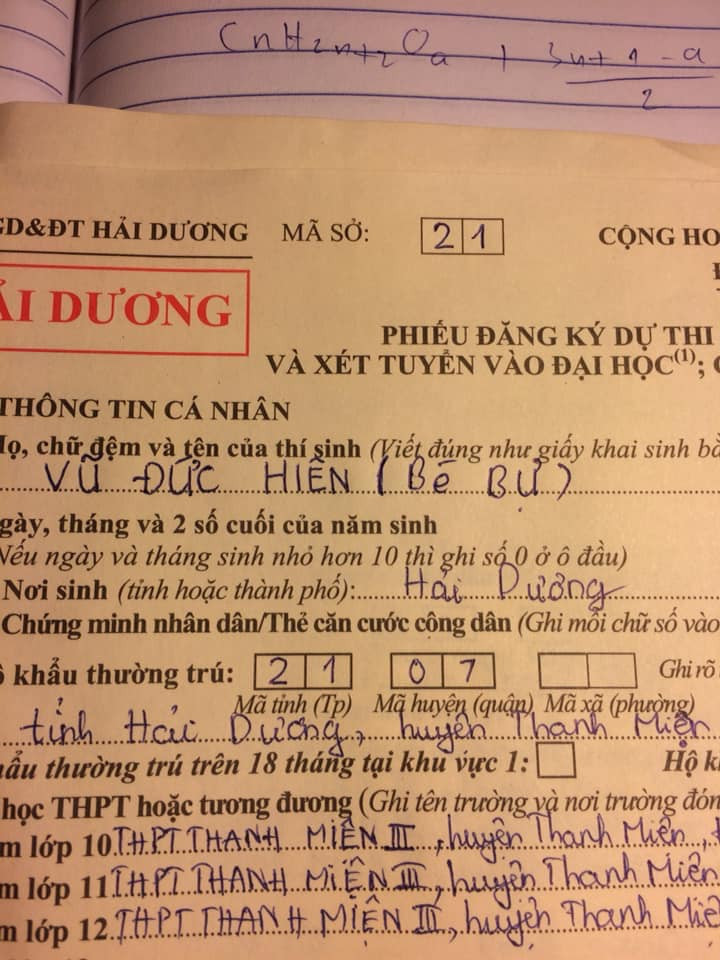 CnH2n+2Oa + 3n+1-a
2
GD&ĐT HẢI DƯƠNG MÃ SỞ: 2 1 CỘNG HO
ẢI DƯƠNG
PHIẾU ĐĂNG KÝ DỰ THI
VÀ XÉT TUYỂN VÀO ĐẠI HỌC(1); C
THÔNG TIN CÁ NHÂN
Họ, chữ đệm và tên của thí sinh (Viết đúng như giấy khai sinh bằ
VŨ ĐỨC HIỂN (Bé BỰ)
gày, tháng và 2 số cuối của năm sinh
Nếu ngày và tháng sinh nhỏ hơn 10 thì ghi số 0 ở ô đầu)
Nơi sinh (tỉnh hoặc thành phố): Hải Dương
Chứng minh nhân dân/Thẻ căn cước công dân (Ghi mỗi chữ số vào
ộ khẩu thường trú: 2 1 0 7 Ghi rõ
Mã tỉnh (Tp) Mã huyện (quận) Mã xã (phường)
tỉnh Hải Dương, huyện Thanh Miện
hẩu thường trú trên 18 tháng tại khu vực 1: Hộ k
học THPT hoặc tương đương (Ghi tên trường và nơi trường đón
m lớp 10 THPT THANH MIỆN III, huyện Thanh Miện, t
m lớp 11 THPT THANH MIỆN III, huyện Thanh Miện
m lớp 12 THPT THANH MIỆN III, huyện Thanh Miệ